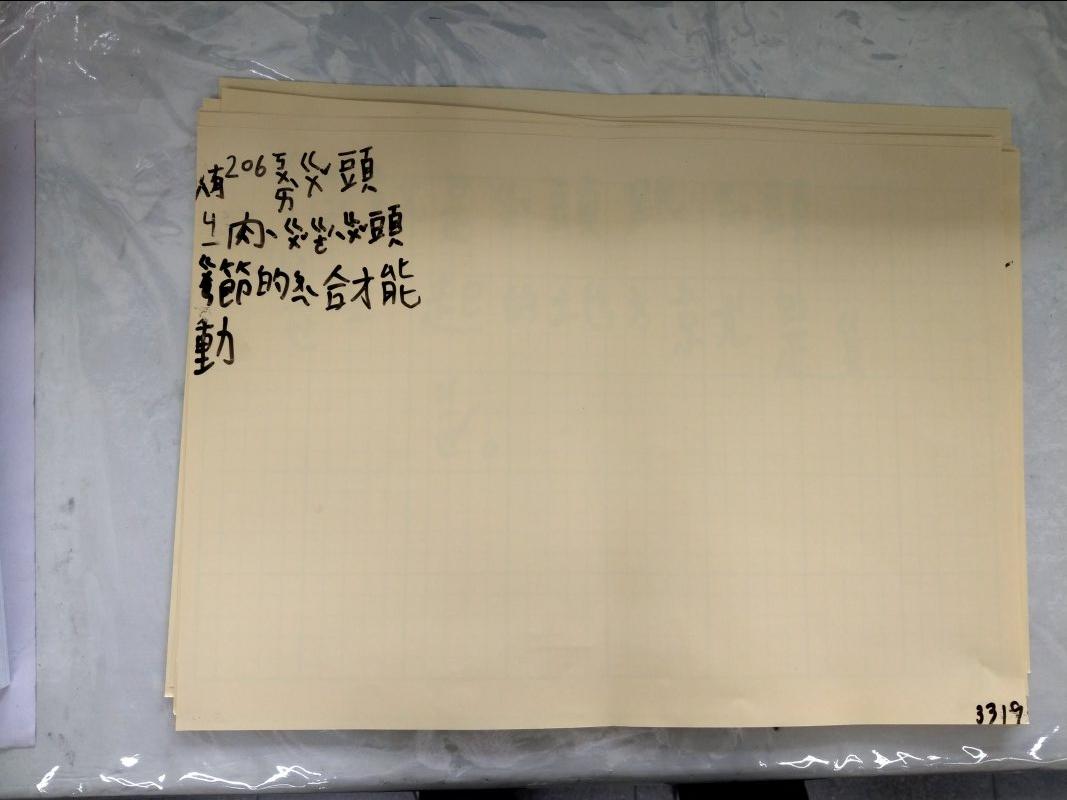 人有206ㄎㄨㄞˋㄍㄨˇ頭
ㄐㄧ肉、ㄍㄨˇㄍㄜˊ、ㄍㄨˇ頭
節的合才能
動
3319